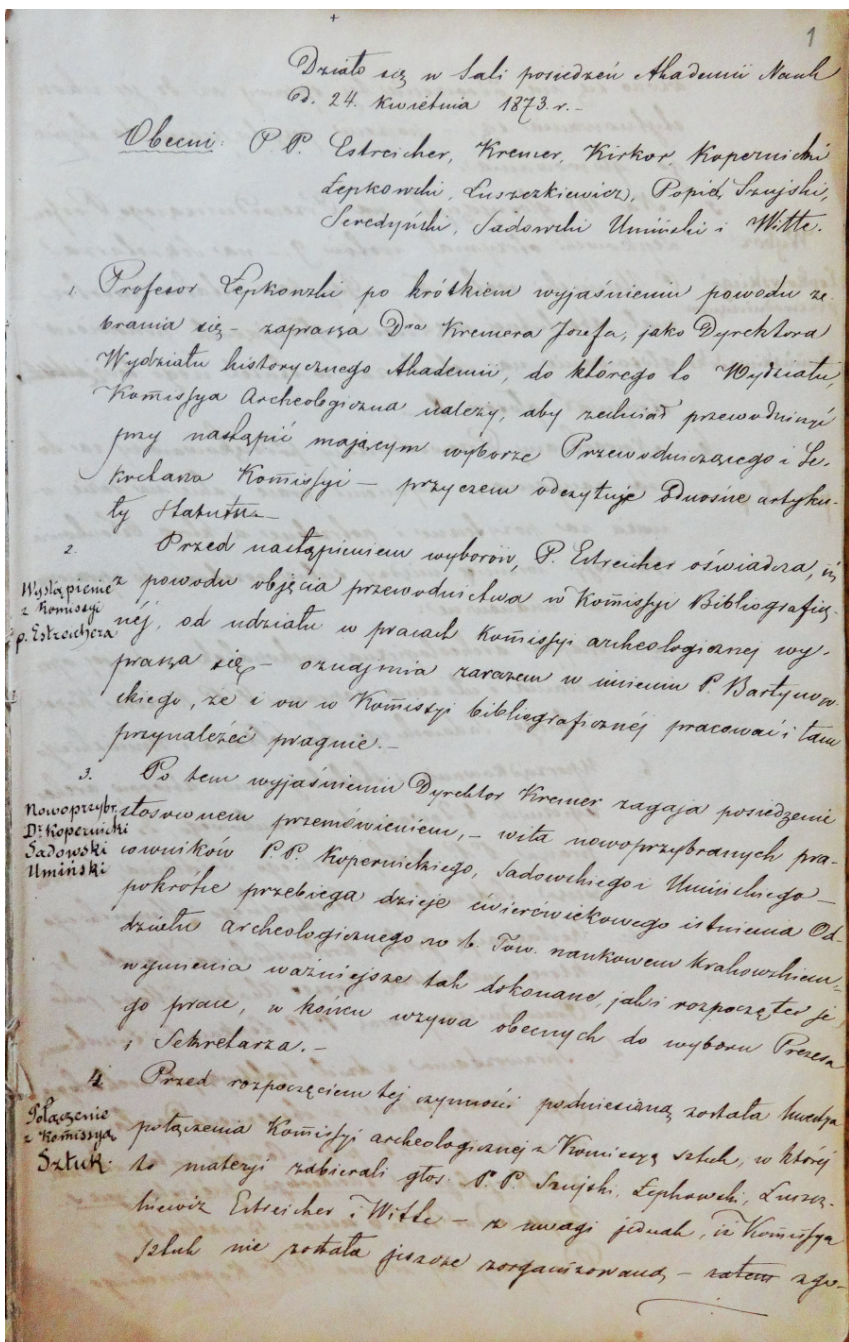 1
Działo się w Sali posiedzeń Akademii Nauk
d. 24. Kwietnia 1873. r. -
Obecni: P. P. Estreicher, Kremer, Kirkor, Kopernicki
Łepkowski, Łuszczkiewicz, Popiel, Szujski,
Seredyński, Sadowski Umiński i Witte.
1. Profesor Łepkowski po krótkiem wyjaśnieniu powodu ze-
brania się - zaprasza Dra Kremera Józefa, jako Dyrektora
Wydziału historycznego Akademii, do którego to Wydziału,
Komissya Archeologiczna należy, aby zechciał przewodniczyć
przy nastąpić mającym wyborze Przewodniczącego i Se-
kretarza Komissyi - przyczem odczytuje odnośne artyku-
ły Statutu. -
2. Przed nastąpieniem wyborów, P. Estreicher oświadcza, iż
Wystąpienie
z Komissyi
p. Estreichera
z powodu objęcia przewodnictwa w Komissyi Bibliografic-
nej, od udziału w pracach Komissyi archeologicznej wy-
prasza się - oznajmia zarazem w imieniu P. Bartynow-
skiego, że i on w Komissyi bibliograficznéj pracować i tam
przynależéć pragnie. -
3. Po tem wyjaśnieniu Dyrektor Kremer zagaja posiedzenie
Nowoprzybr.
Dr. Kopernicki
Sadowski
Umiński
stosownem przemówieniem, - wita nowoprzybranych pra-
cowników P. P. Kopernickiego, Sadowskiego i Umińskiego -
pokrótce przebiega dzieje ćwierćwiekowego istnienia Od-
działu archeologicznego w b. Tow. naukowem krakowskiem,
wymienia ważniejsze tak dokonane, jak i rozpoczęte je-
go prace, w końcu wzywa obecnych do wyboru Prezesa
i Sekretarza. -
4. Przed rozpoczęciem tej czynności podniesioną została kwestya
Połączenie
z Komissyą
Sztuk.
połączenia Komissyi archeologicznej z Komissyą sztuk, w której
to materyi zabierali głos. P. P. Szujski, Łepkowski, Łuszcz-
kiewicz Estreicher i Witte - z uwagi jednak, iż Komissya
sztuk nie została jeszcze zorganizowaną, - zatem zgo-